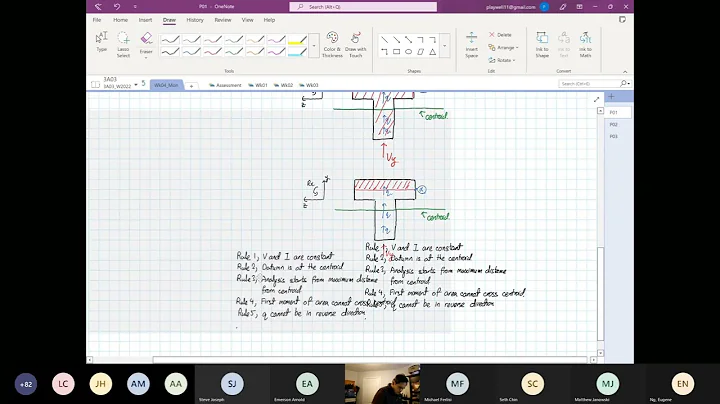 P01 - OneNote
Search (Alt+Q)
File Home Insert Draw History Review View Help
Type
Lasso Select
Eraser
Color & Thickness
Draw with Touch
Insert Space
Delete
Arrange
Rotate
Ink to Shape
Ink to Text
Ink to Math
Tools
Shapes
Edit
Convert
3A03
3A03_W2022
Wk04_Mon
+
Assessment
Wk01
Wk02
Wk03
Search (Ctrl+E)
P01
P02
P03
centroid
Vy
y
z
q
q
q
centroid
Rule 1, V and I are constant
Rule 2, Datum is at the centroid
Rule 3, Analysis starts from maximum distance
from centroid
Rule 4, First moment of area cannot cross centroid
Rule 5, q cannot be in reverse direction
Rule 1, V and I are constant
Rule 2, Datum is at the centroid
Rule 3, Analysis starts from maximum distance
from centroid
Rule 4, First moment of area cannot cross centroid
q cannot be in reverse direction
+82
LC
JH
AM
AA
SJ
EA
MF
SC
MJ
EN
Steve Joseph
Emerson Arnold
Michael Ferlisi
Seth Chin
Matthew Janowski
Ng, Eugene